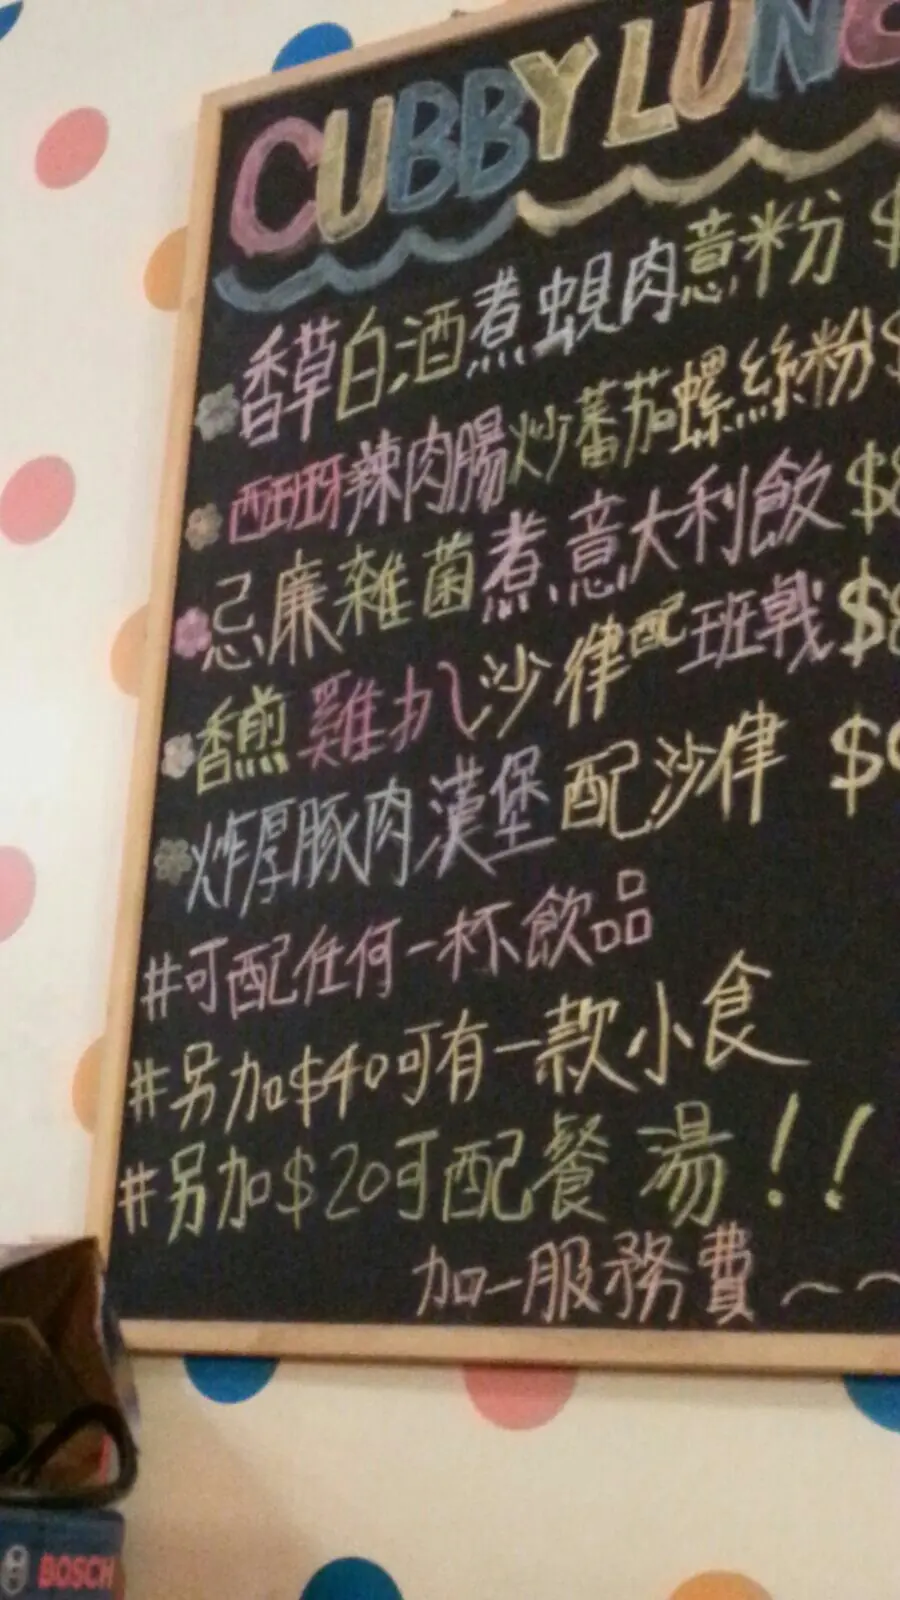 CUBBY LUNC
香草白酒煮蜆肉意粉 $
西班牙辣肉腸炒蕃茄螺絲粉 $
忌廉雜菌煮意大利飯 $8
香煎雞扒沙律配班戟 $8
炸厚豚肉漢堡配沙律 $9
#可配任何一杯飲品
#另加$40可有一款小食
#另加$20可配餐湯!!
加一服務費~~
BOSCH